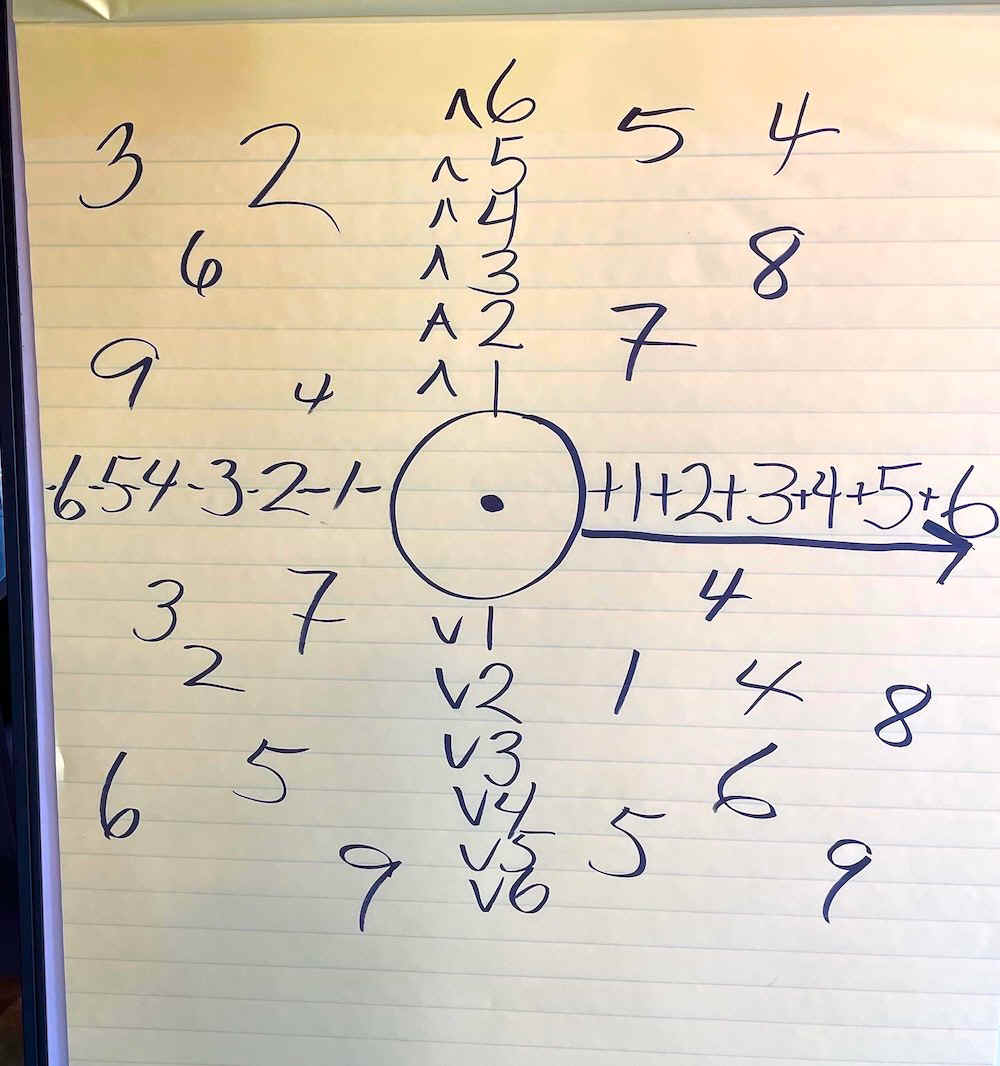 ^6
3 2 ^5 5 4
^4
6 ^3 8
^2 7
9 4 ^1
-6-5-4-3-2-1- +1+2+3+4+5+6
3 7 v1 4
2 v2 1 4 8
6 5 v3 6
v4
v5 5
9 v6 9